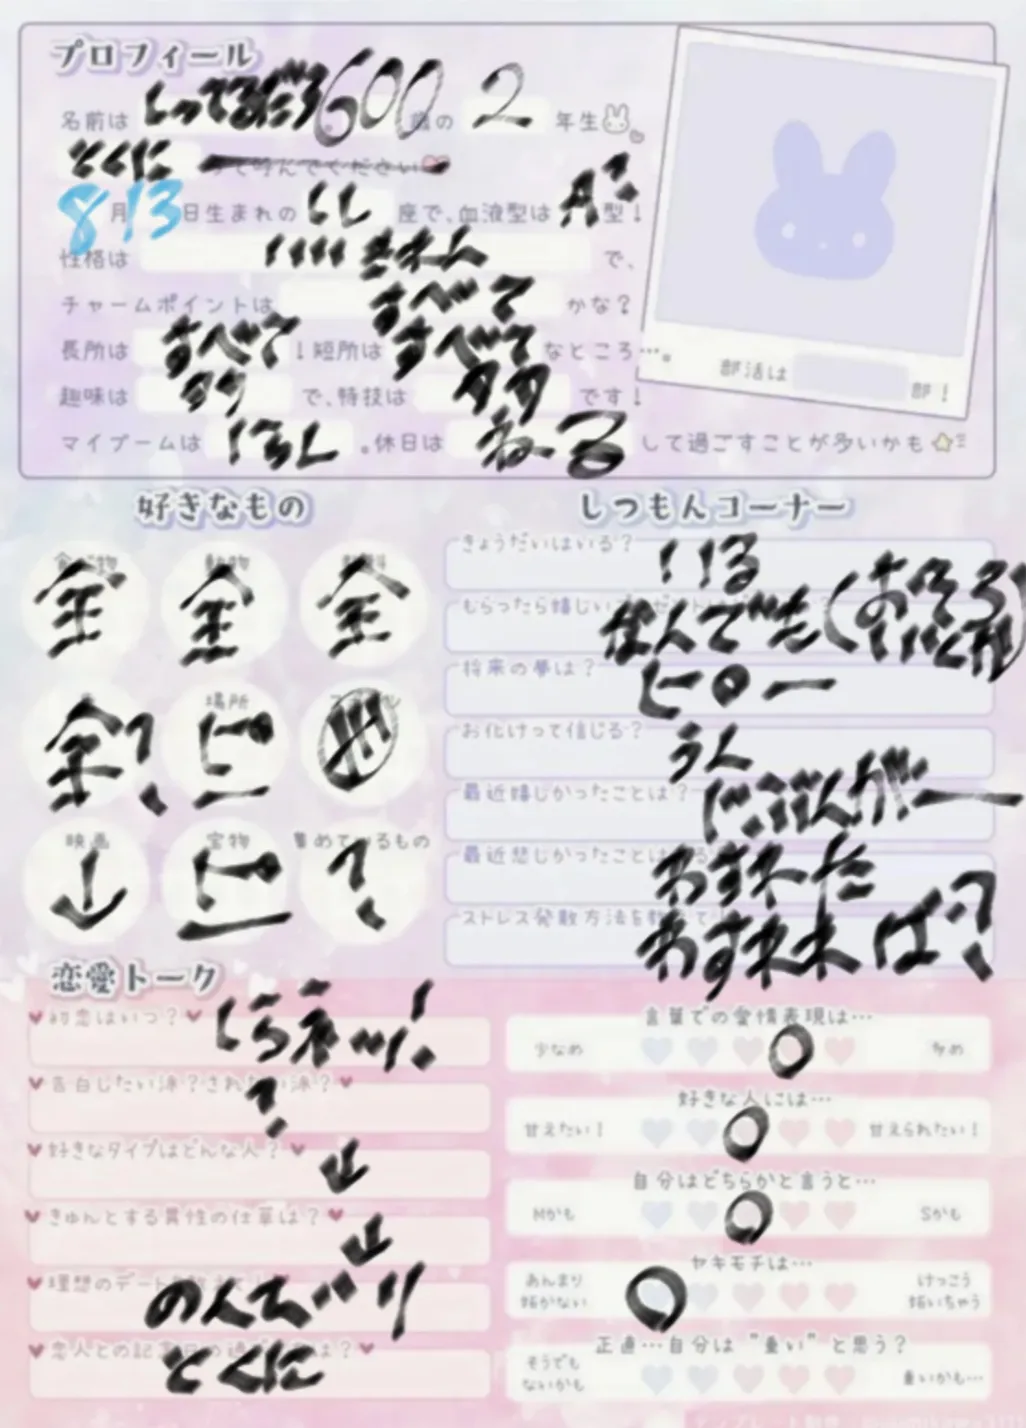 プロフィール
名前は しってるだろ。600歳の 2 年生
とくに って呼んでください
8月13日生まれの しし 座で、血液型は A? 型!
性格は で、
チャームポイントは すべて かな?
長所は すべて !短所は すべて なところ…。
趣味は で、特技は です!
マイブームは 。休日は ねる して過ごすことが多いかも
部活は 部!
好きなもの
食べ物 動物 飲料
全 全 全
場所
全 ?
映画 宝物 集めているもの
↓ ?
しつもんコーナー
きょうだいはいる?
いる
もらったら嬉しいプレゼントは?
なんでも
将来の夢は?
ヒーロー
お化けって信じる?
うん
最近嬉しかったことは?
最近悲しかったことは
わすれた
ストレス発散方法を教えて!
わすれれば?
恋愛トーク
初恋はいつ?
しらネッ!
告白したい派?されたい派?
?
好きなタイプはどんな人?
↓
きゅんとする異性の仕草は?
↓
理想のデートを教えて
のんびり
恋人との記念日の過ごし方は?
とくに
言葉での愛情表現は…
少なめ 多め
好きな人には…
甘えたい! 甘えられたい!
自分はどちらかと言うと…
Mかも Sかも
ヤキモチは…
あんまり妬かない けっこう妬いちゃう
正直…自分は"重い"と思う?
そうでもないかも 重いかも…